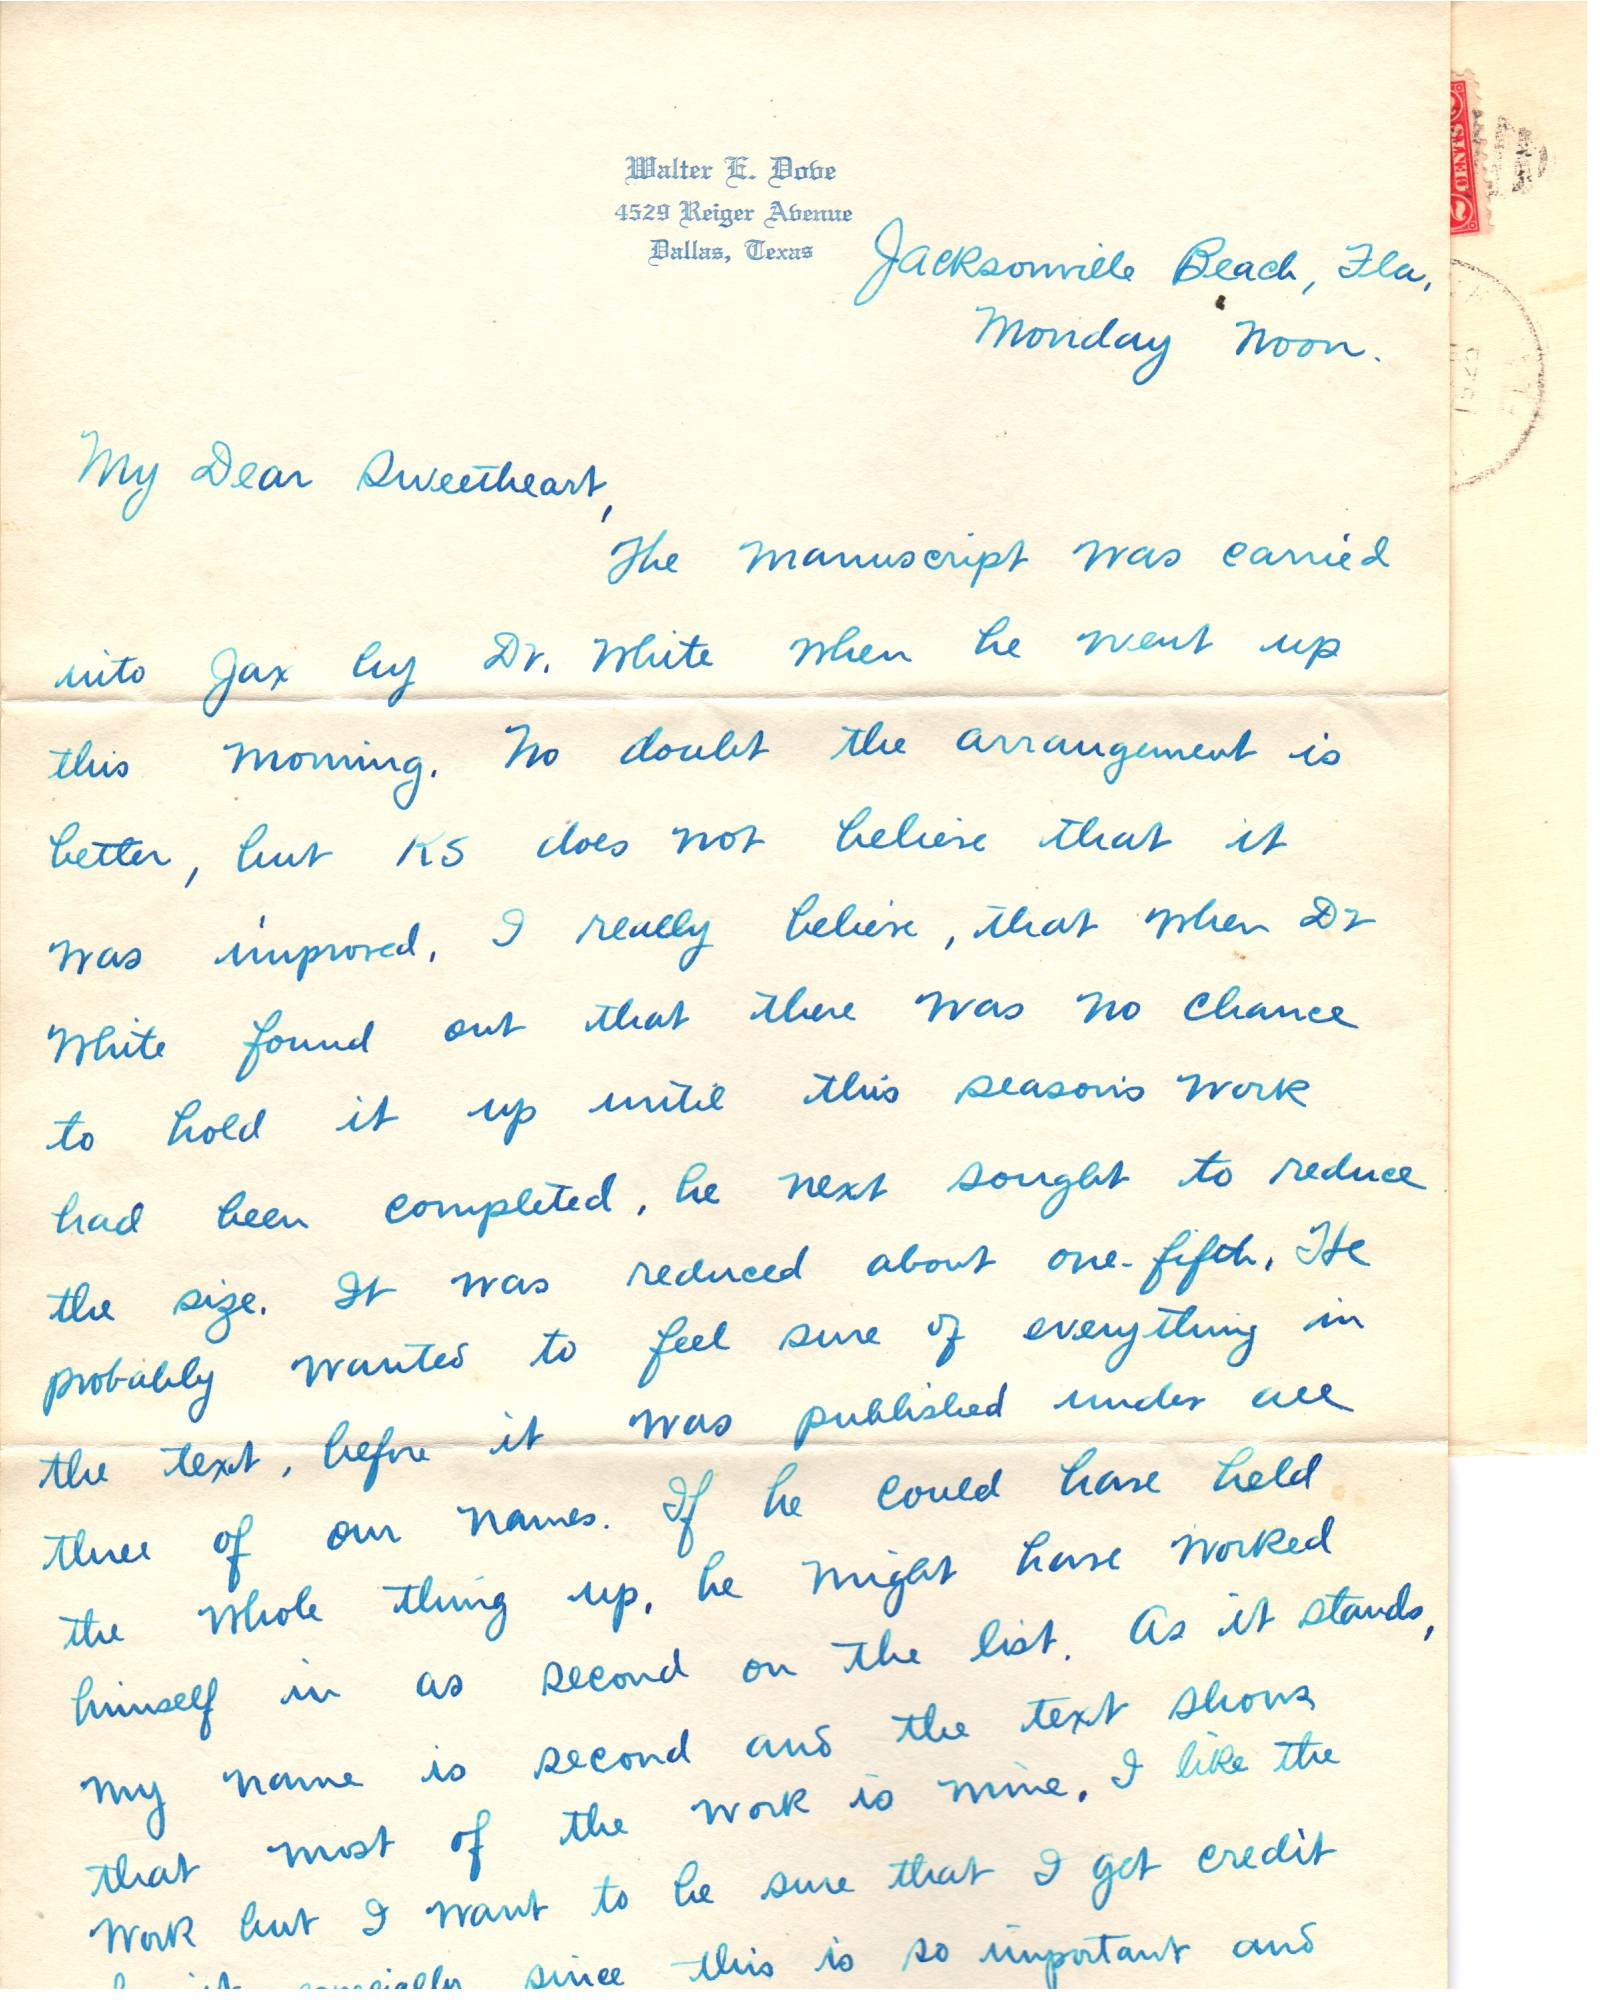 Walter E. Dove
4529 Reiger Avenue
Dallas, Texas
2 CENTS 2
Jacksonville Beach, Fla,
Monday Noon.
My Dear Sweetheart,
The manuscript was carried
into Jax by Dr. White when he went up
this morning. No doubt the arrangement is
better, but KS does not believe that it
was improved. I really believe, that when Dr
White found out that there was no chance
to hold it up until this season's work
had been completed, he next sought to reduce
the size. It was reduced about one-fifth. He
probably wanted to feel sure of everything in
the text, before it was published under all
three of our names. If he could have held
the whole thing up, he might have worked
himself in as second on the list. As it stands,
my name is second and the text shows
that most of the work is mine. I like the
work but I want to be sure that I get credit
it especially since this is so important and